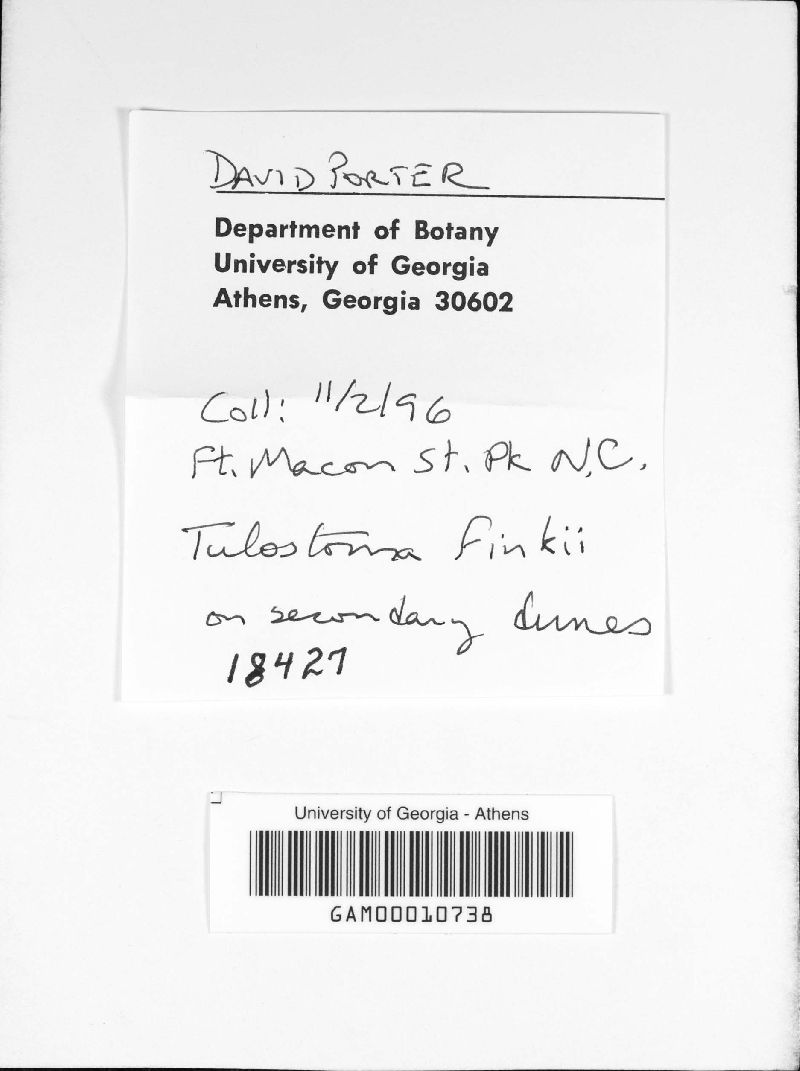 DAVID PORTER
Department of Botany
University of Georgia
Athens, Georgia 30602
Coll: 11/2/96
Ft. Macon St. Pk N.C.
Tulostoma finkii
on secondary dunes
18427
University of Georgia - Athens
GAM00010738